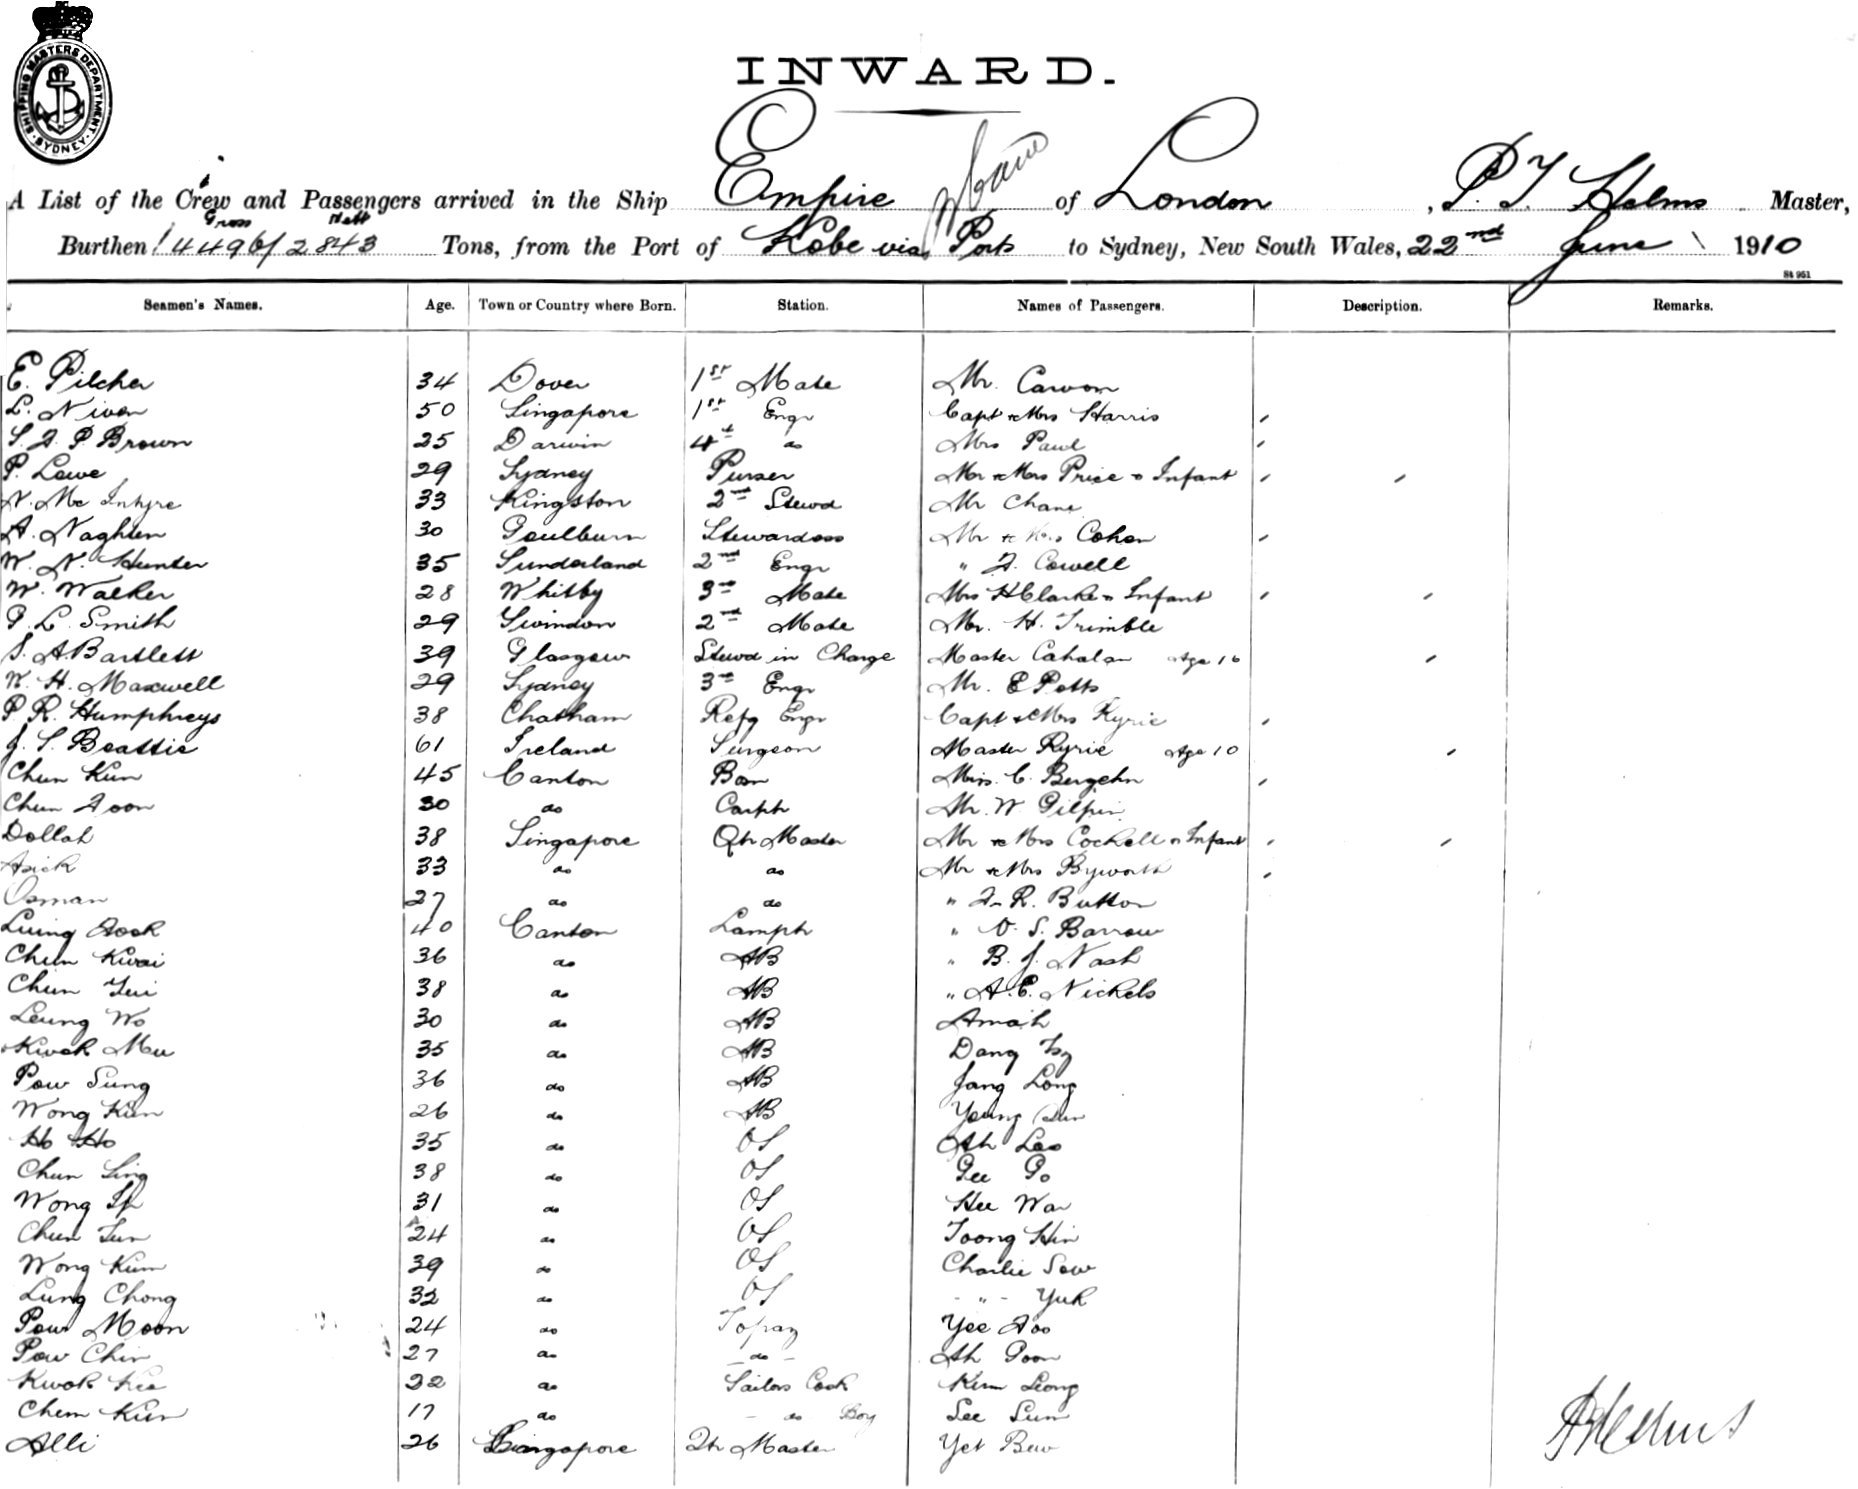 SHIPPING MASTERS DEPARTMENT
SYDNEY
INWARD.
A List of the Crew and Passengers arrived in the Ship Empire of London, P. T. Helms Master,
Gross Nett
Burthen 4496/2843 Tons, from the Port of Kobe via Ports to Sydney, New South Wales, 22nd June 1910
St 951
Seamen's Names. Age. Town or Country where Born. Station. Names of Passengers. Description. Remarks.
E. Pilcher 34 Dover 1st Mate Mr. Cawom
L. Niven 50 Singapore 1st Engr Capt & Mrs Harris
S. J. P Brown 25 Darwin 4th do Mrs Paul
P. Lowe 29 Sydney Purser Mr & Mrs Price & Infant
N. Mc Intyre 33 Kingston 2nd Stewd Mr Chane
A. Naghten 30 Goulburn Stewardess Mr & Mrs Cohen
W. N. Hunter 35 Sunderland 2nd Engr " F. Cowell
W. Walker 28 Whitby 3rd Mate Mrs H Clarke & Infant
G. L. Smith 29 Swindon 2nd Mate Mr. H. Trimble
S. A. Bartlett 39 Glasgow Stewd in Charge Master Cahalan Age 16
W. H. Maxwell 29 Sydney 3rd Engr Mr. E Potts
P R. Humphreys 38 Chatham Refg Engr Capt & Mrs Pyrie
J. S. Beattie 61 Ireland Surgeon Master Pyrie Age 10
Chun Kun 45 Canton Bosn Miss. C. Bergehn
Chun Foon 30 do Carptr Mr. W Gilpin
Dollah 38 Singapore Qtr Master Mr & Mrs Cockell & Infant
Asick 33 do do Mr & Mrs Byworth
Osman 27 do do " F. R. Button
Luing Fook 40 Canton Lamptr " O. S. Barrow
Chun Kwai 36 do AB " B. J. Nash
Chun Yui 38 do AB " A. E. Nickels
Leung Wo 30 do AB Amah
Kwok Mu 35 do AB Dang
Pow Sung 36 do AB Jang Long
Wong Kun 26 do AB Young
Ho Ho 35 do OS Ah Lee
Chun Sing 38 do OS Gee Go
Wong 31 do OS Hee War
Chun Tun 24 do OS Toong Hin
Wong Kum 39 do OS Charlie Sow
Lung Chong 32 do OS - " - Yuk
Pow Moon 24 do Topaz Yee Foo
Pow Chin 27 do - do - Ah Goon
Kwok Kee 22 do Sailors Cook Kum Leong
Chem Kun 17 do - do Boy See Sum
Alli 26 Singapore Qtr Master Yet Bew